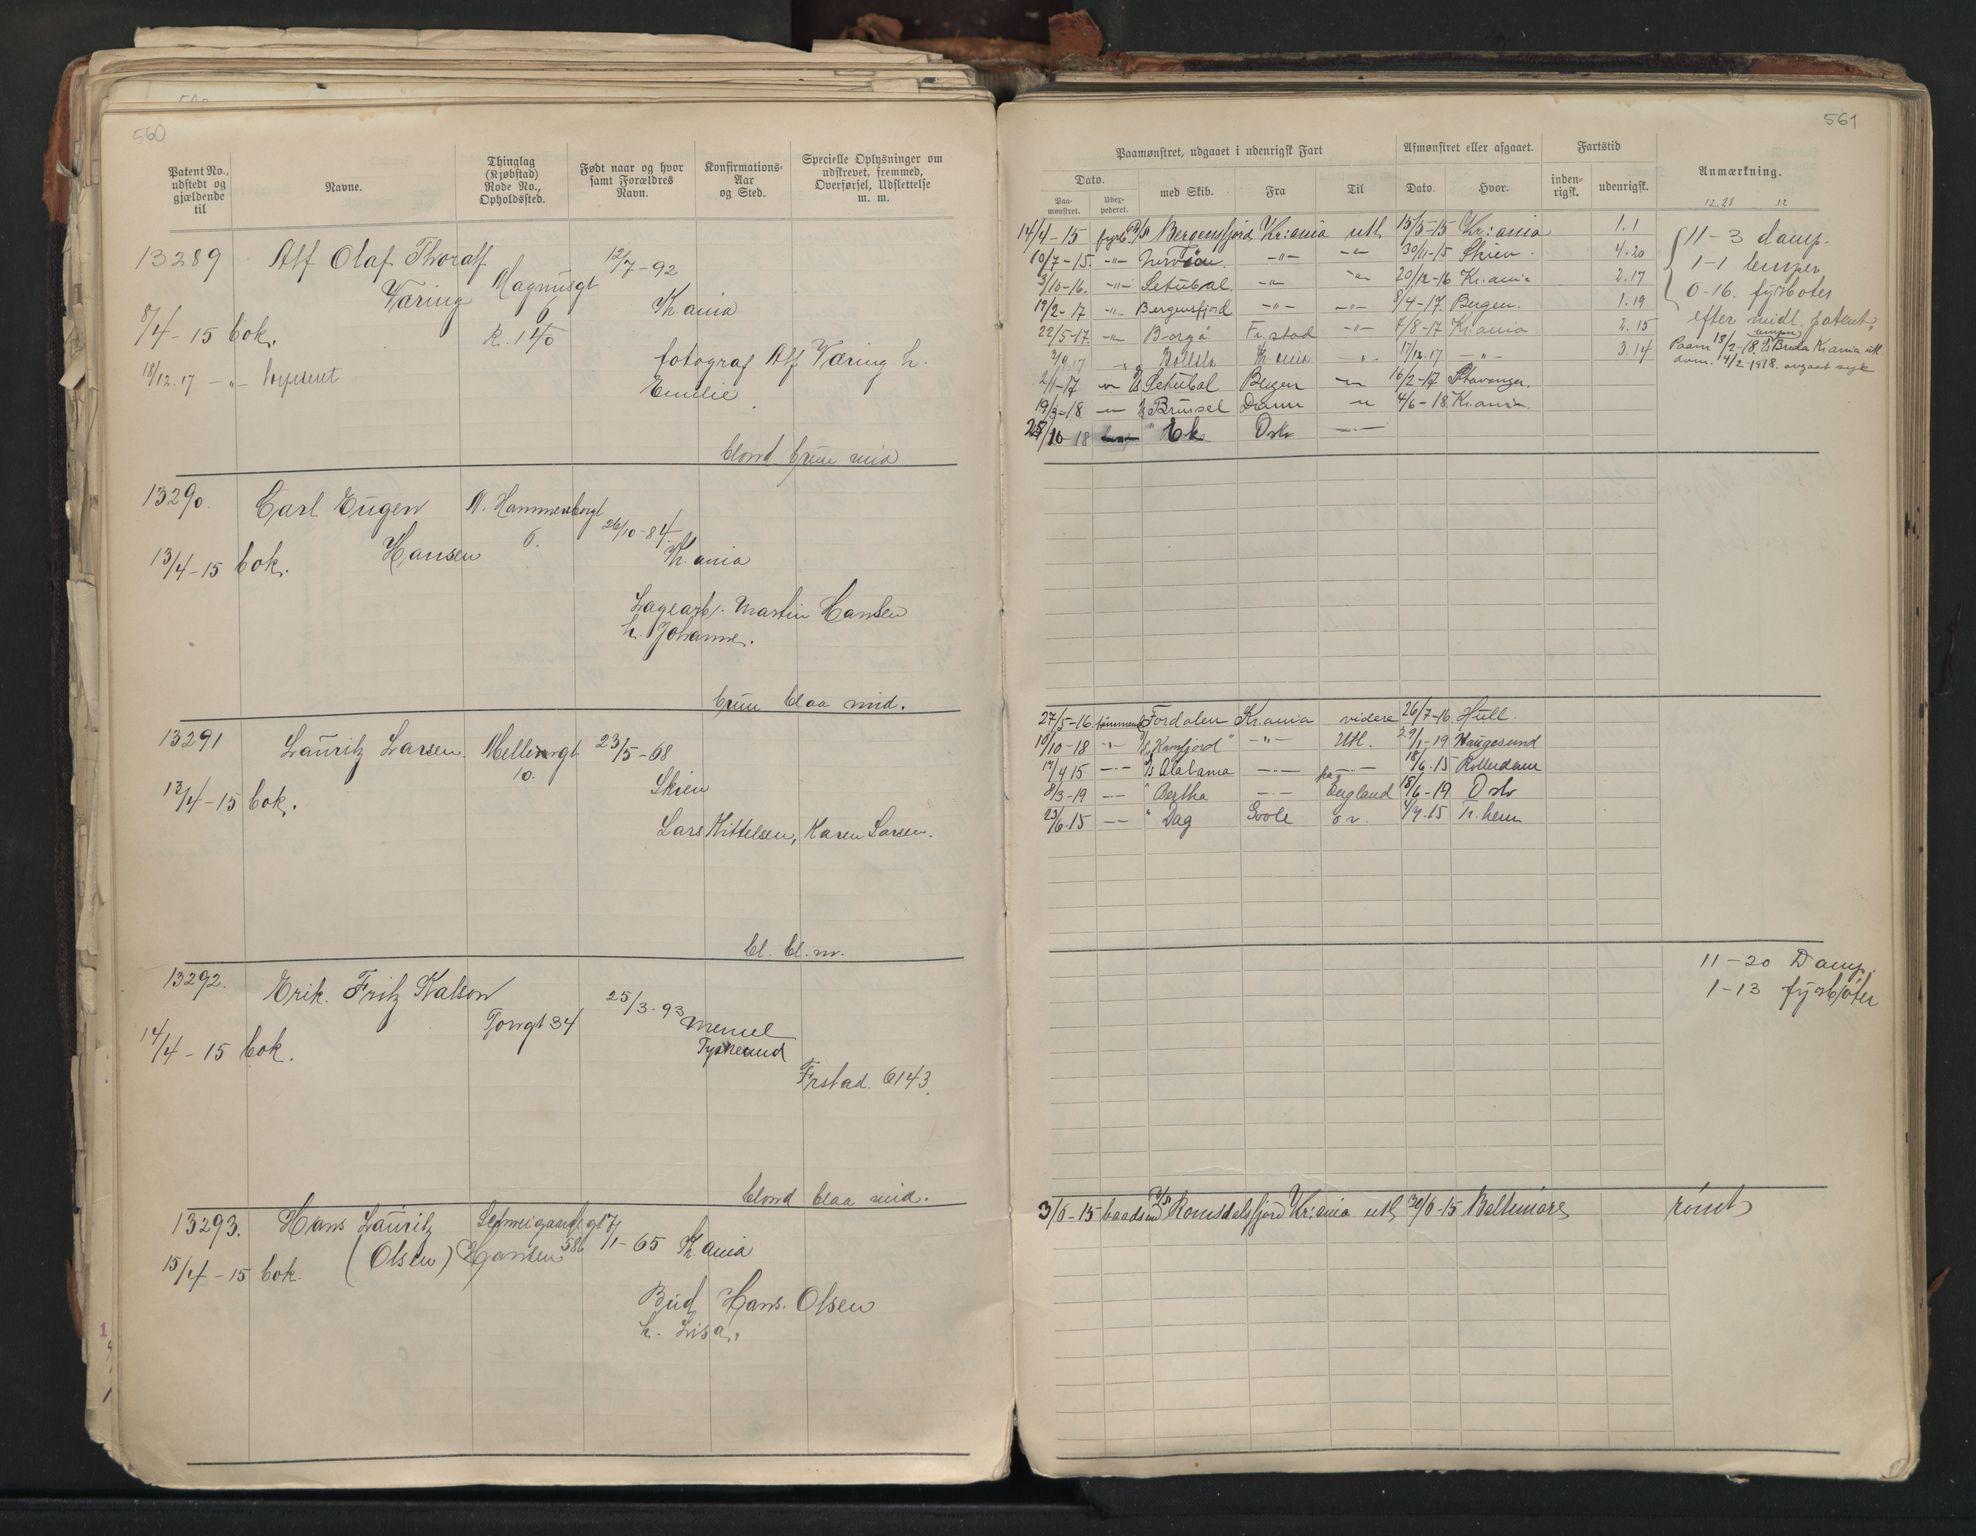 560
Patent No., udstedt og gjældende til
Navne.
Thinglag (Kjøbstad) Rode No., Opholdssted.
Født naar og hvor samt Forældres Navn.
Konfirmations-Aar og Sted.
Specielle Oplysninger om udskrevet, fremmed, Overførsel, Udslettelse m. m.
13289 Alf Olaf Thoralf Magnusgt 12/7-92
Væring 6 Kr.ania
8/4-15 bok. R. 140
fotograf Alf Væring h.
18/12.17 -"-
Emilie
blond brun mid
13290. Carl Eugen N. Hammersborgt 26/10-84.
Hansen 6. Kr.ania
13/4-15 bok.
Lagearb. Martin Hansen
h. Johanne.
brun blaa mid.
13291 Lauritz Larsen. Møllergt 23/5-68
10.
13/4-15 bok. Skien
Lars Kittelsen, Karen Larsen.
bl. bl. m.
13292. Erik Fritz Kalson 25/3-93
Torvgt 34 Memel
14/4-15 bok. Tyskland
Frstad. 6143.
blond blaa mid.
13293. Hans Lauritz Schweigaardsgt 17/1-65 Kr.ania
(Olsen) Hansen 58b
15/4-15 bok.
Bud Hans Olsen
h. Lisa.
561
Paamønstret, udgaaet i udenrigsk Fart
Afmønstret eller afgaaet.
Fartstid
Anmærkning.
Dato.
Paamønstret.
Udexpederet.
med Skib.
Fra
Til
Dato.
Hvor.
indenrigsk.
udenrigsk.
12.28 12
14/4-15 fyrb. D/S Bergensfjord Kr:ania utl 15/5-15 Kr:ania 1.1 11-3 damp.
10/7-15. -"- -"- -"- 30/11-15 Skien 4.20 1-1 lemper
3/10-16. -"- Setubal -"- -"- 20/12-16 Kr.ania 2.17 0-16. fyrbøter
19/2-17 " Bergensfjord -"- -"- 8/4-17 Bergen. 1.19 efter midl. patent.
22/5-17. -"- Borgå Fr.stad -"- 7/8-17 Kr.ania 2.15
Kr ania -"- 17/12.17 -"- 3.14
Paam 13/2-18. Breda Kr.ania utl
4/2-1918. avgaat syk
2/1-17 D/S Setubal Bergen -"- 16/2-17 Stavanger.
19/3-18 -"- Brussel Dram -"- 4/6-18. Kr.ania
25/10-18 " Ek Oslo -"-
27/5-16 tømmerm. Fordalen Kr.ania videre 26/7-16 Hull.
10/10-18 -"- "Kamfjord" -"- Utl. 29/1-19 Haugesund
17/4 15 -"- D/S Alabama -"- -"- 18/6.15 Rotterdam
8/3-19 -"- " Bertha -"- England 18/6-19 Oslo
23/6.15 -"- " Dag Goole o.v. Tr.hem
11-20 Damp.
1-13 fyrbøter
3/6-15 baadsmd D/S Romsdalsfjord Kr:ania utl 30/6-15 Baltimore rømt